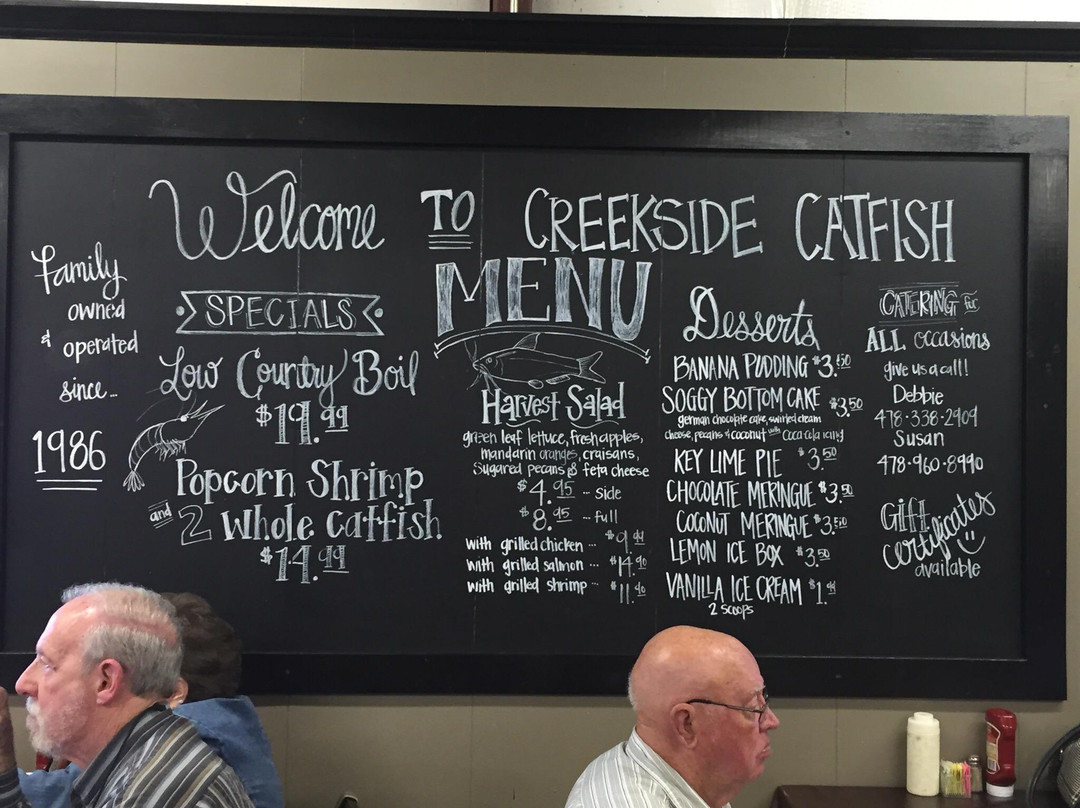 Welcome TO CREEKSIDE CATFISH
MENU
Family
owned
& operated
since...
1986
SPECIALS
Low Country Boil
$19.99
Popcorn Shrimp
and 2 whole catfish
$14.99
Harvest Salad
green leaf lettuce, fresh apples,
mandarin oranges, craisans,
sugared pecans & feta cheese
$4.95 -- side
$8.95 -- full
with grilled chicken ... $9.99
with grilled salmon ... $14.90
with grilled shrimp ... $11.90
Desserts
BANANA PUDDING $3.50
SOGGY BOTTOM CAKE $3.50
german chocolate cake, swirled cream
cheese, pecans & coconut with coca-cola icing
KEY LIME PIE $3.50
CHOCOLATE MERINGUE $3.50
COCONUT MERINGUE $3.50
LEMON ICE BOX $3.50
VANILLA ICE CREAM $1.99
2 scoops
CATERING for
ALL occasions
give us a call!
Debbie
478-338-2909
Susan
478-960-8990
Gift
certificates
available